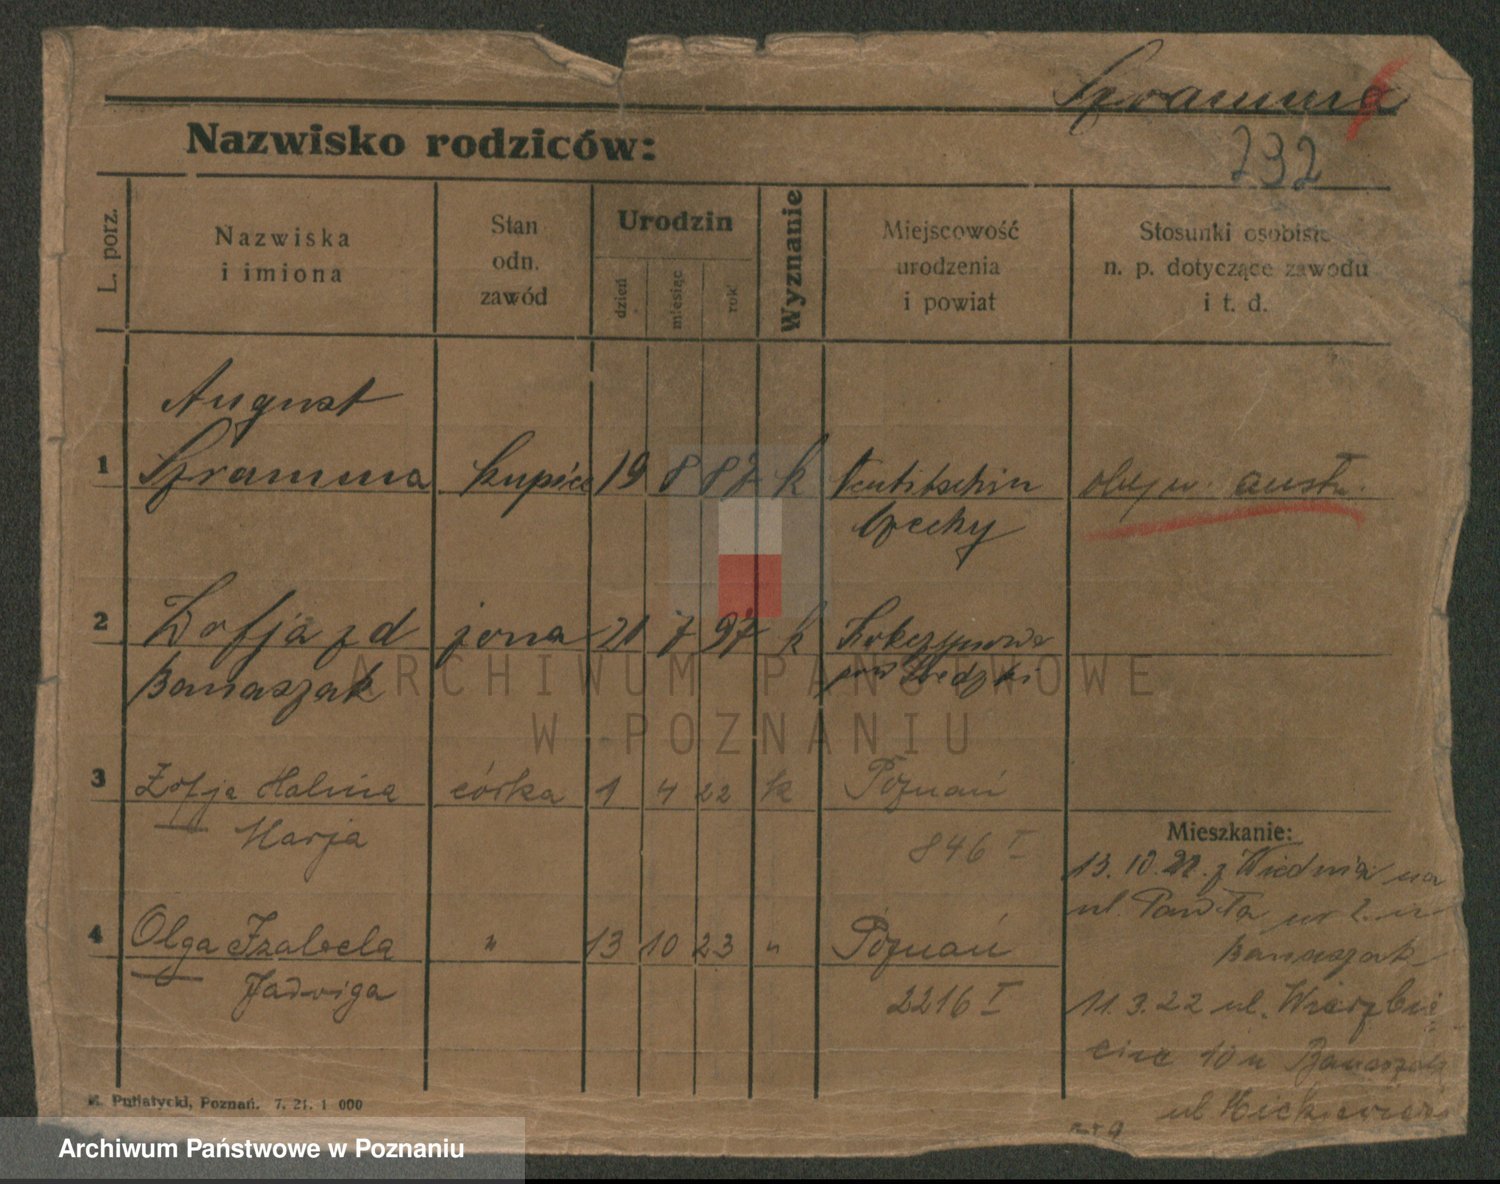 Szramma
232
Nazwisko rodziców:
L. porz.
Nazwiska
i imiona
Stan
odn.
zawód
Urodzin
dzień
miesiąc
rok
Wyznanie
Miejscowość
urodzenia
i powiat
Stosunki osobiste
n. p. dotyczące zawodu
i t. d.
August
1 Szramma kupiec 19 8 87 k obyw. austr.
Czechy
2 Zofja z d żona 7 97 k
Banaszak
3 Zofja Halina córka 1 4 22 k Poznań
Marja 846 I
Mieszkanie:
13. 10. z Wiednia na
ul. Pawła
Banaszak
4 Olga Izabela " 13 10 23 " Poznań
Jadwiga 2216 I
11. 3. 22 ul. Wierzbię-
cice 10 u Banaszak
ul Mickiewicza
Putiatycki, Poznań. 7. 21. 1 000
ARCHIWUM PAŃSTWOWE
W POZNANIU
Archiwum Państwowe w Poznaniu